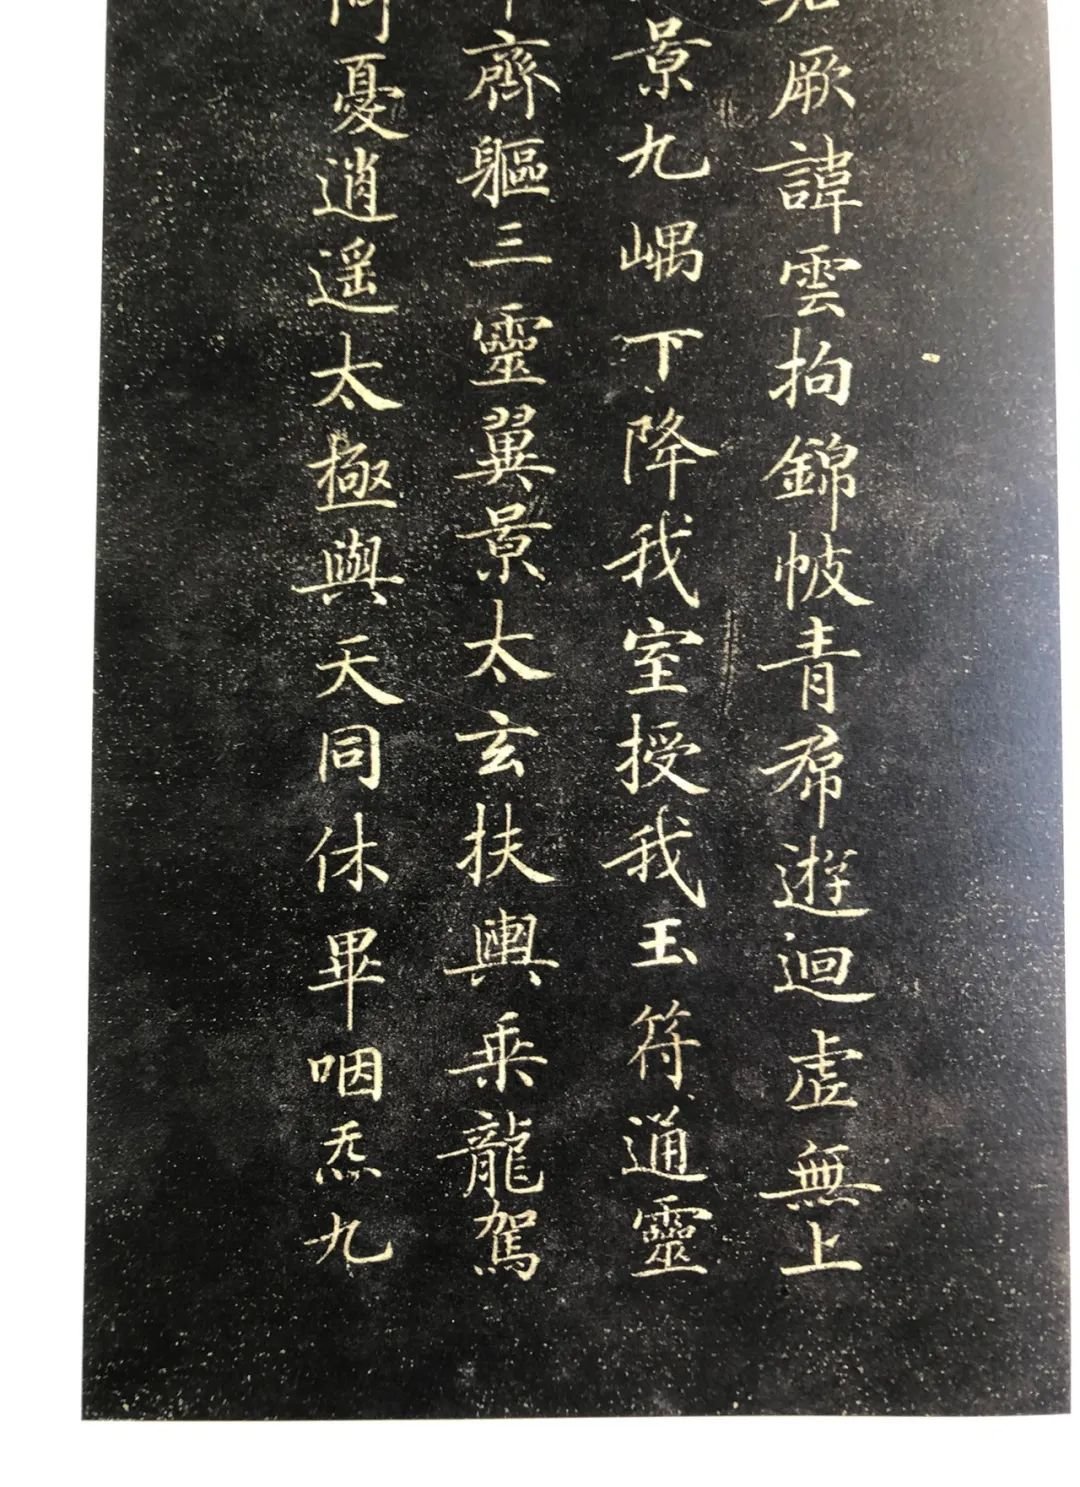 厥諱雲拘錦帔青帬遊迴虛無上
景九嵎下降我室授我玉符通靈
齊軀三靈翼景太玄扶輿乘龍駕
何憂逍遥太極與天同休畢咽炁九